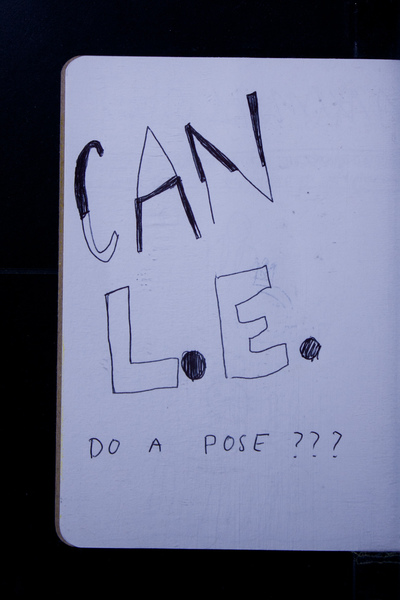 CAN
L.E.
DO A POSE ???